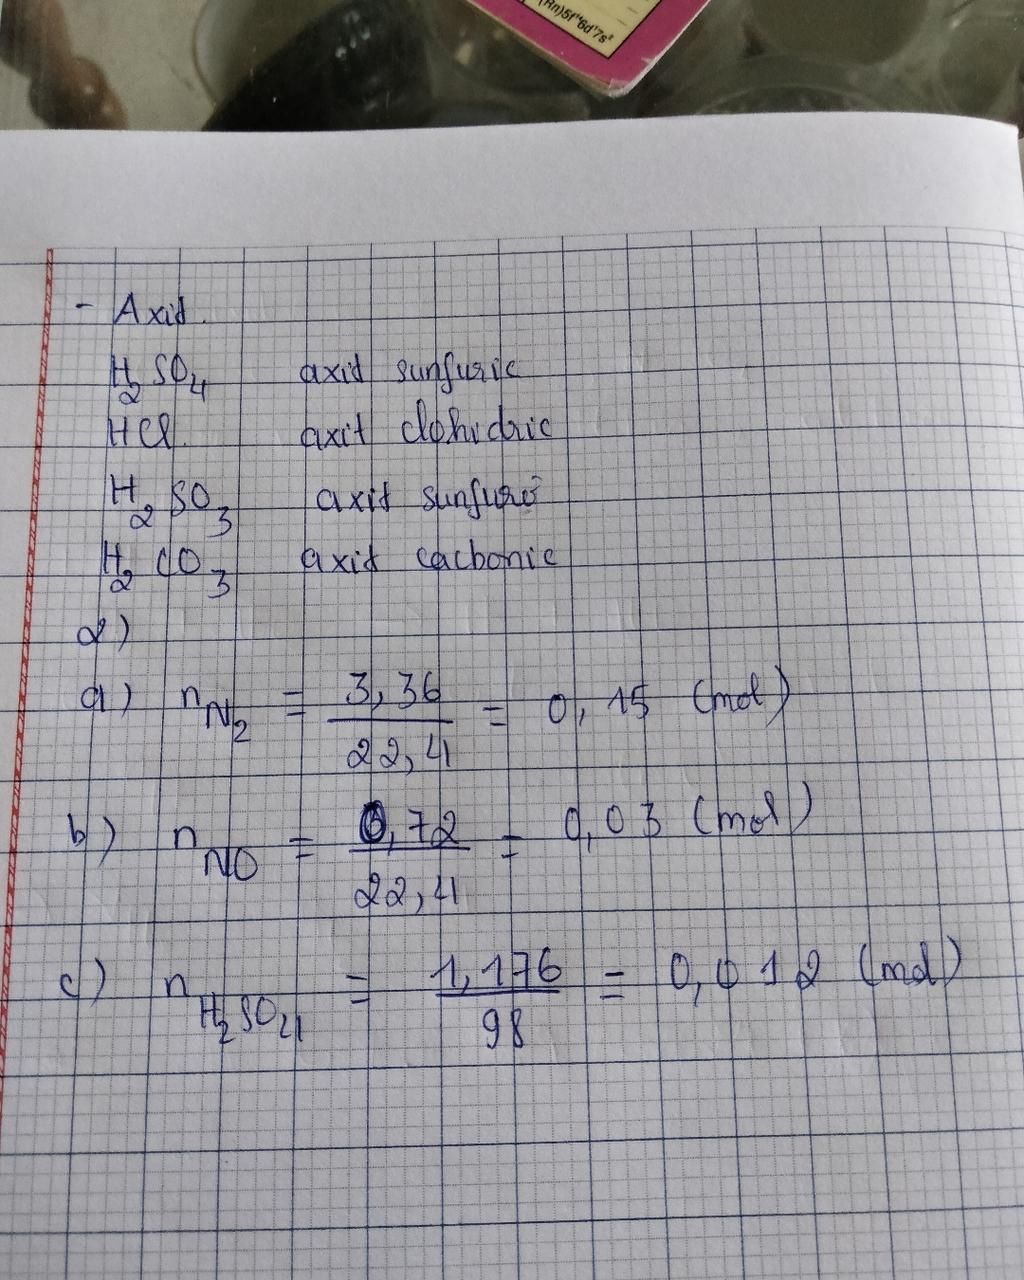 (Rn)5f¹⁴6d¹7s²
- Axit.
H₂SO₄ axit sunfuric
HCl. axit clohidric
H₂SO₃ axit sunfurơ
H₂CO₃ axit cacbonic
2)
a) n N₂ = 3,36 / 22,4 = 0,15 (mol)
b) n NO = 0,72 / 22,4 = 0,03 (mol)
c) n H₂SO₄ = 1,176 / 98 = 0,012 (mol)